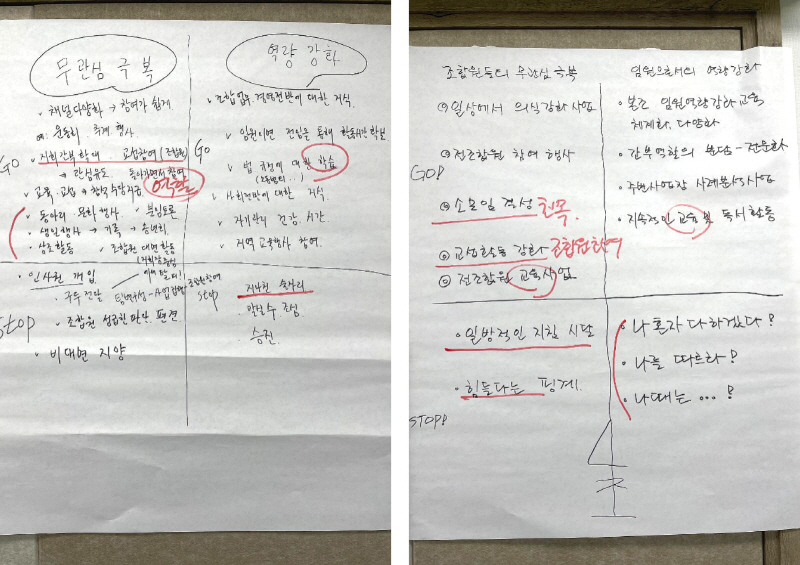 무관심 극복
역량 강화
채널다양화 → 참여가 쉽게
예: 운동회, 주제 행사
GO
지회간부 확대
교섭참여(조합원)
→ 관심유도
역할
교육, 교섭 → 참석수당지급
동아리 문화행사
분임토론
생일행사 → 기록 → 송년회
상조활동
조합원 대면 활동
조합 업무·전반에 대한 지식.
GO
임원이면 전임을 통해 활동시간 확보
법 규정에 대한 학습
사회전반에 대한 지식.
자기관리 건강, 시간
지역 교육행사 참여.
STOP
인사권 개입
구두 전달
조합원 성급한 판단, 편견
비대면 지양
조합원참여
STOP
지나친 술자리
말실수 조심
승진
조합원들의 무관심 극복
임원으로서의 역량강화
① 일상에서 의식강화 사업
② 전조합원 참여 행사
GO!
③ 소모임 결성 친목.
④ 교섭활동 강화 조합원참여
⑤ 전조합원 교육사업
본조 임원역량강화 교육
체계화, 다양화
간부역할의 분담 - 전문화
주변사업장 사례분석사업
지속적인 교육 및 독서 활동
일방적인 지침 시달
힘들다는 핑계.
STOP!
나 혼자 다 하겠다?
나를 따르라?
나때는 ...?